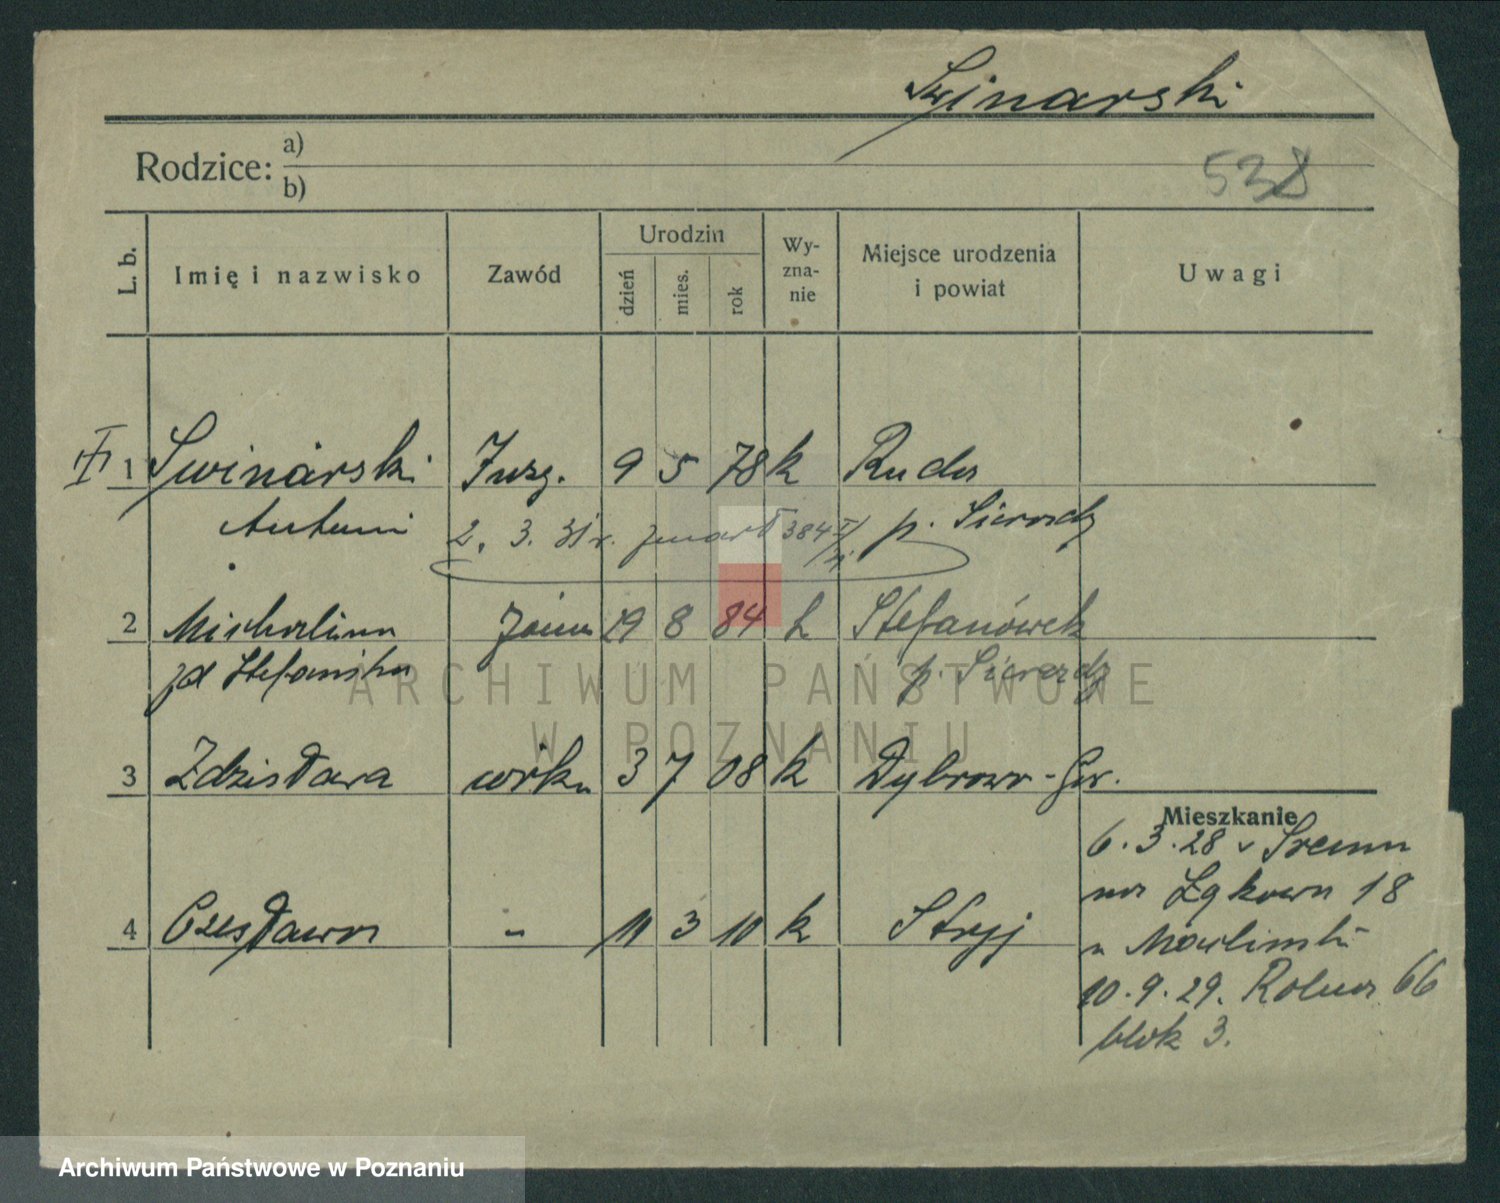 Swinarski
Rodzice: a)
b)
538
L. b.
Imię i nazwisko
Zawód
Urodzin
dzień
mies.
rok
Wy-
zna-
nie
Miejsce urodzenia
i powiat
Uwagi
1 Swinarski 9 5 78 k Ruda
Antoni p. Sieradz
2. 3. 31 r. zmarł 384
2 Michalina żona 19 8 84 k Stefanówek
zd Stefańska p. Sieradz
3 Zdzisława córka 3 7 08 k Dąbrowa-Gór.
4 Czesława " 11 3 10 k Stryj
Mieszkanie
6. 3. 28 z Śremu
na Łąkowa 18
u
10. 9. 29. Rolna 66
blok 3.
ARCHIWUM PAŃSTWOWE
W POZNANIU
Archiwum Państwowe w Poznaniu